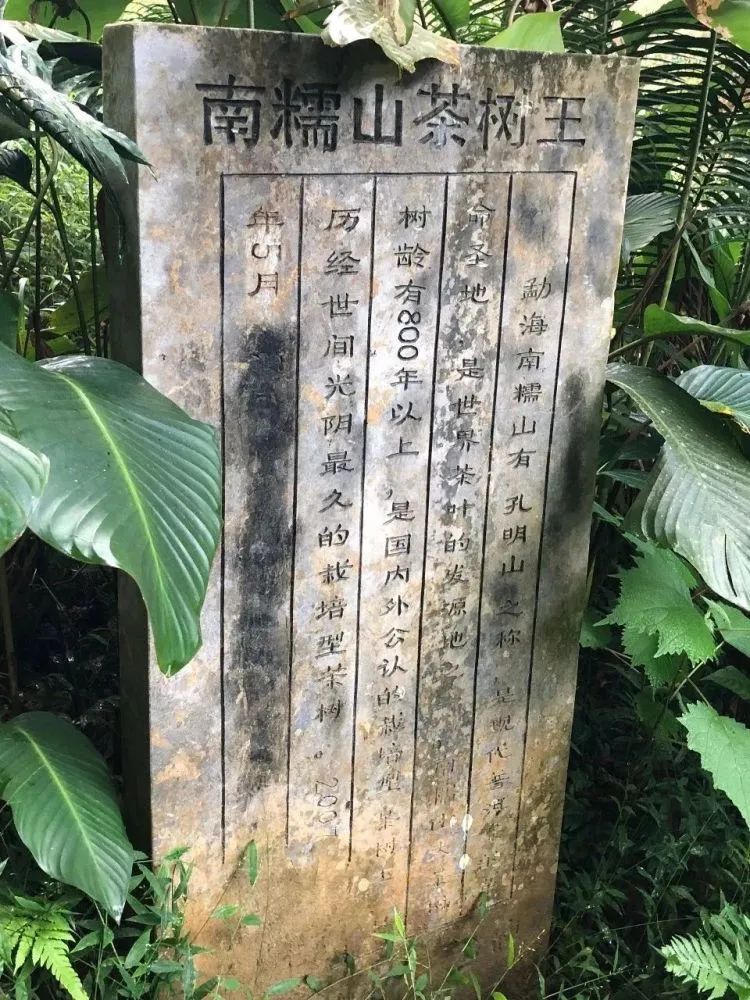 南糯山茶树王
勐海南糯山有孔明山之称，是现代普洱
命圣地，是世界茶叶的发源地
树龄有800年以上，是国内外公认的栽培型
历经世间光阴最久的栽培型茶树。200
年5月